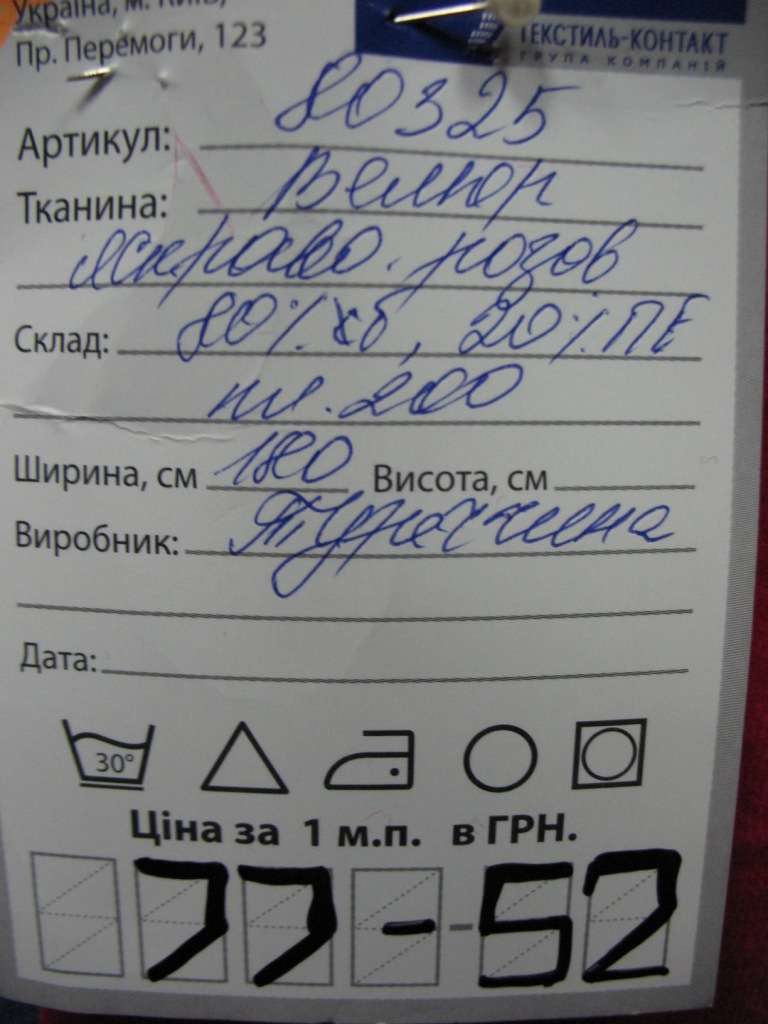 Україна, м. Київ,
Пр. Перемоги, 123
ТЕКСТИЛЬ-КОНТАКТ
ГРУПА КОМПАНІЙ
Артикул: 80325
Тканина: Велюр
яскраво. розов
Склад: 80% хб, 20% ПЕ
пл. 200
Ширина, см 180 Висота, см
Виробник: Туреччина
Дата:
30°
Ціна за 1 м.п. в ГРН.
77-52